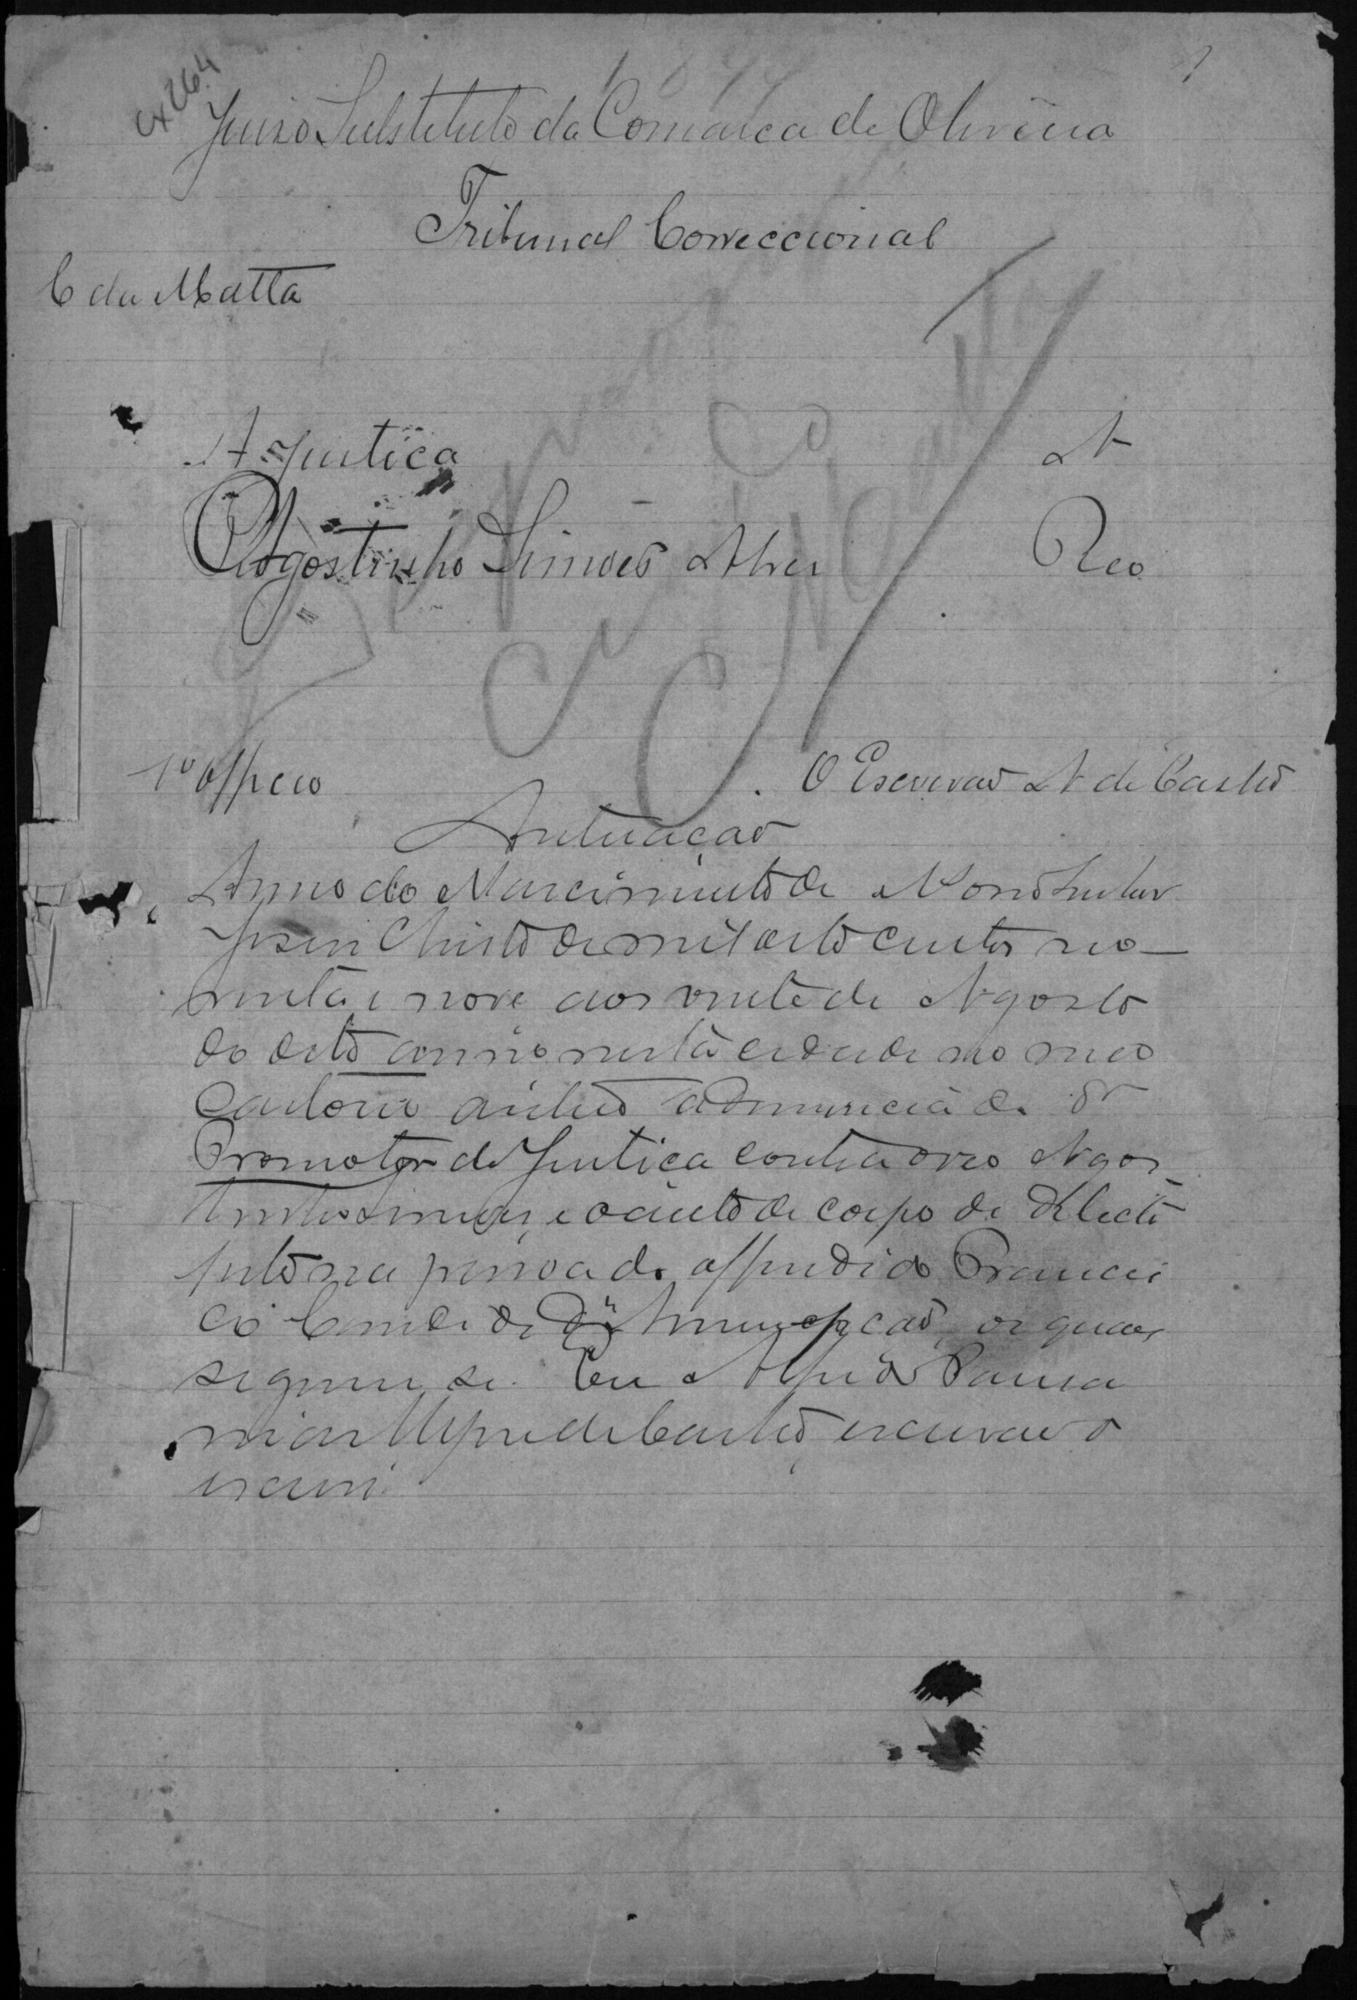 1899
1
Cx 264
Juizo Substituto da Comarca de Oliveira
Tribunal Correccional
C da Matta
A Justica A
Agostinho Simões Alves Reo
C. Matta
1º officio O Escrivão A de Castro
Autuação
Anno do Nascimento de Nosso Senhor
Jesus Christo de mil oito centos no-
venta e nove aos vinte de Agosto
do dito anno nesta cidade no meo
Cartorio autuo a denuncia do Dr
Promotor de Justica contra o reo Agos
tinho Simões, e o auto de corpo de delicto
feito na pessoa do offendido Francis
co Candido da Annunciação, os quaes
seguem se. Eu Alfredo Pausa
nias Alves de Castro, escrivão o
escrevi.